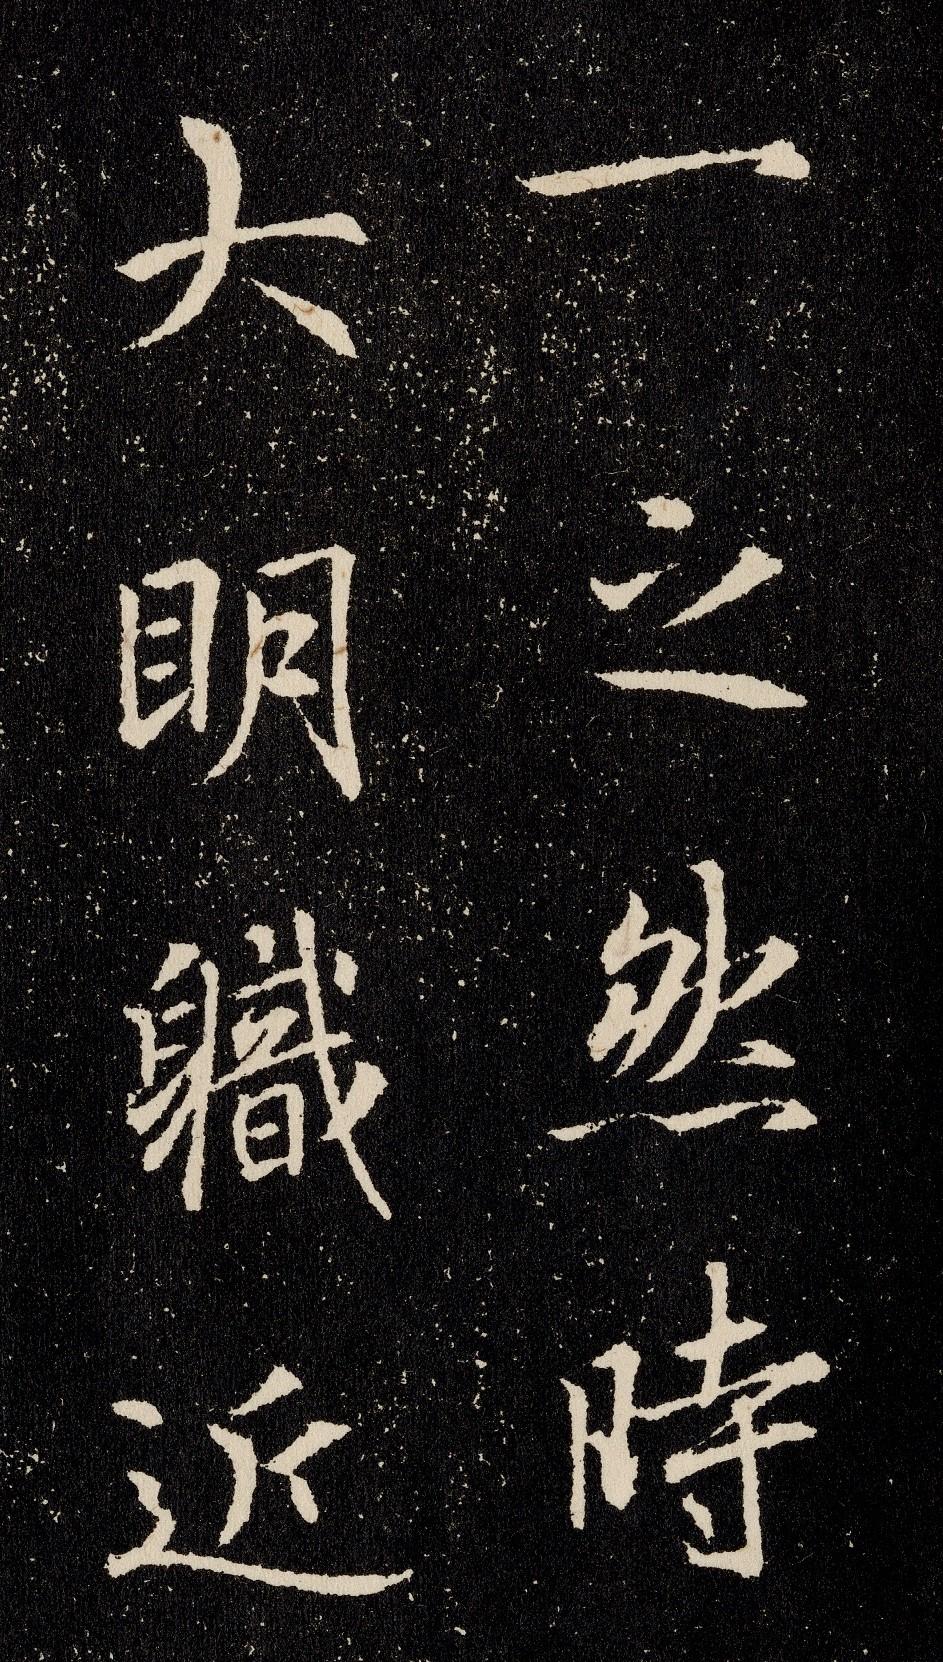 一之然時
大明軄近